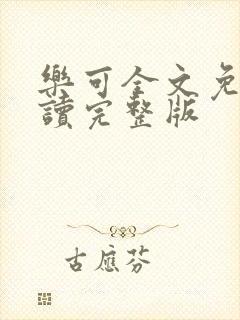 樂可全文免
讀完整版
古應芬